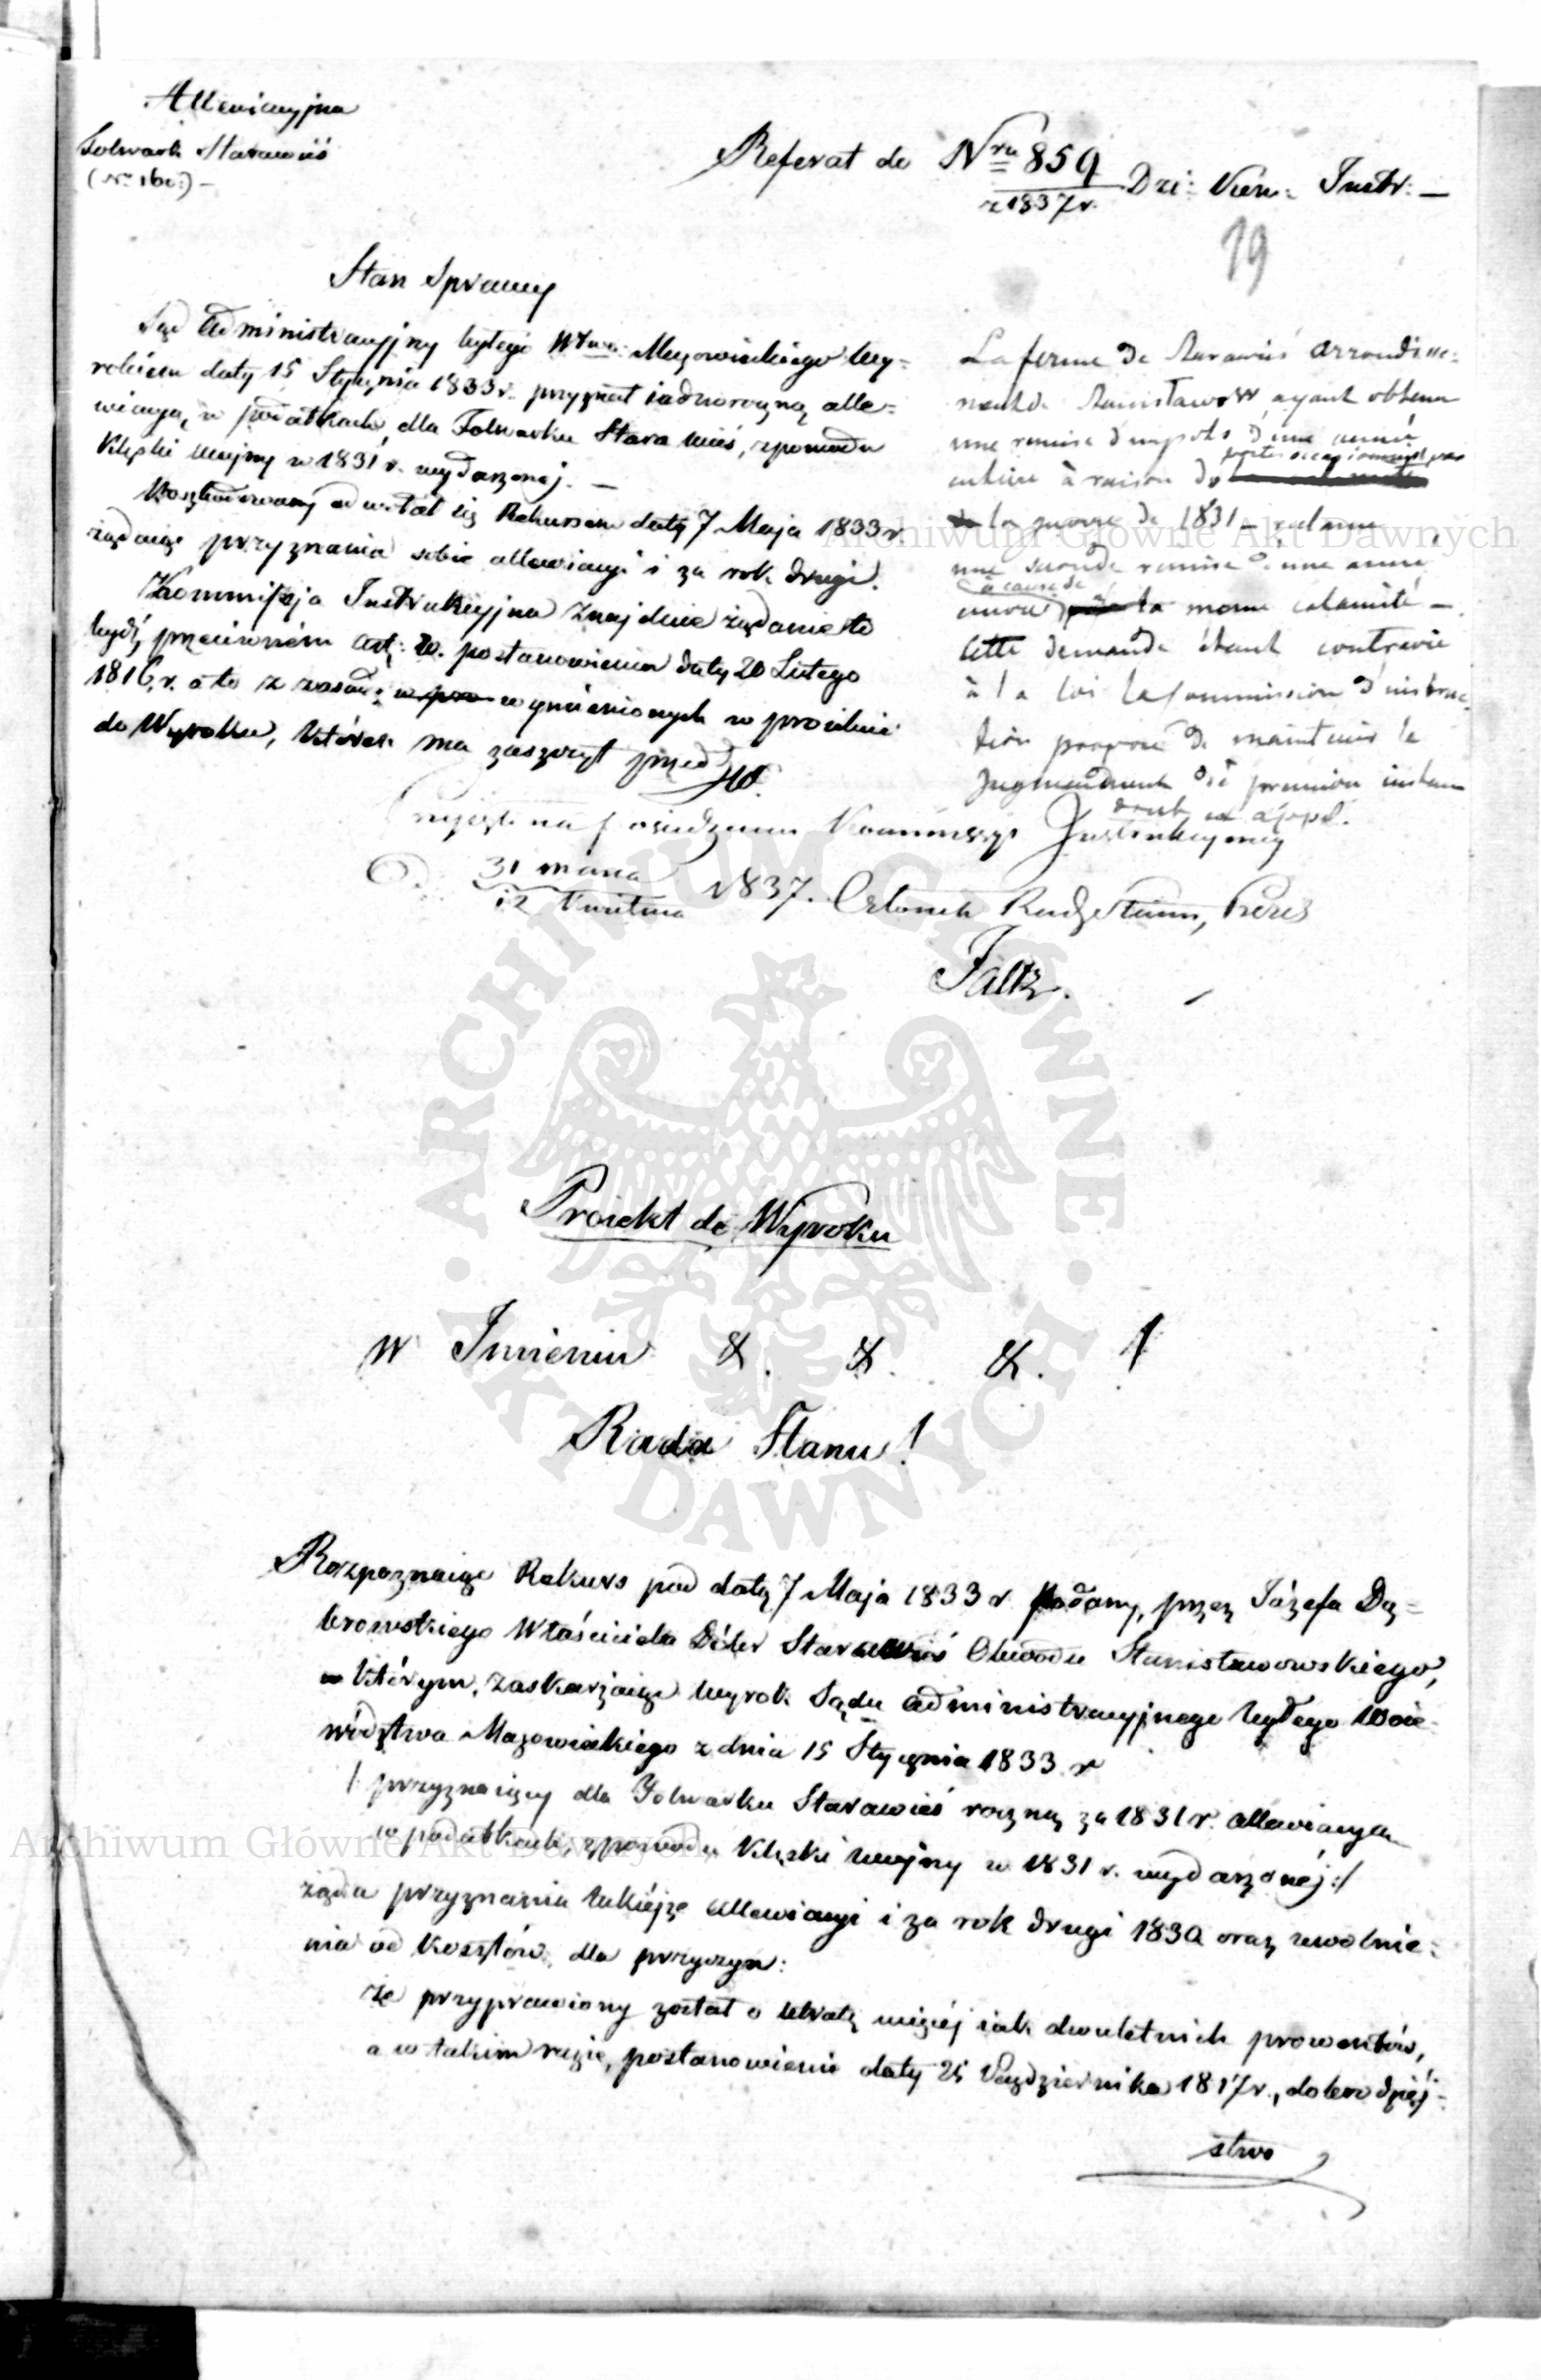 Allewiacyjna
Folwark Starawieś
(Nr 160:) –
Referat do Nru 859 Dzi: Kien: Instr: –
z 1837 r.
19
Stan Sprawy
Sąd Administracyjny byłego Wtwa Mazowieckiego Wy=
rokiem daty 15 Stycznia 1833 r. przyznał iednoroczną alle=
wiacyą w podatkach dla Folwarku Stara wieś, z powodu
Klęski wojny w 1831 r. wydarzonej. –
Poszkodowany odwołał się Rekursem daty 7 Maja 1833 r
żądaiąc przyznania sobie allewiacyi i za rok drugi.
Kommissja Instrukcyjna znajduie żądanie to
bydź przeciwném Art: postanowienia daty 20 Lutego
1816 r. a to z zasad w pro wymienionych w proiekcie
do Wyroku, który ma zaszczyt przed
La ferme de Starawieś arrondisse=
ment de Stanisławow, ayant obtenu
une remise d'impots d'une année
entière à raison de pertes occasionnées par
la guerre de 1831 – réclame
une seconde remise d'une année
encore à cause de la meme calamité –
Cette demande étant contraire
à la loi la Commission d'instruc=
tion propose de maintenir le
jugement de premiere instance
dont est appel.
Przyięto na Posiedzeniu Kommissyi Instrukcyjney
D. 31 marca 1837. Członek Rady Stanu, Prezes
12 Kwietnia
Faltz.
Proiekt do Wyroku
w Imieniu &. &. &. !
Rada Stanu!
Rozpoznaiąc Rekurs pod datą 7 Maja 1833 r podany, przez Józefa Dą=
browskiego Właściciela Dóbr Starawieś Obwodu Stanisławowskiego,
w którym, zaskarżaiąc wyrok Sądu Administracyjnego byłego Woie=
wództwa Mazowieckiego z dnia 15 Stycznia 1833 r
/ przyznaiący dla Folwarku Starawieś roczną za 1831 r. allewiacyą
w podatkach, z powodu Klęski wojny w 1831 r. wydarzonéj:/
żąda przyznania takiéjże allewiacyi i za rok drugi 1832 oraz uwolnie=
nia od kosztów, dla przyczyn:
że przyprawiony został o utratę więcéj iak dwuletnich prowentów,
a w takim razie, postanowienie daty 25 Października 1817 r., dobrodziéj=
stwo
Archiwum Główne Akt Dawnych
Archiwum Główne Akt Dawnych
ARCHIWUM GŁÓWNE AKT DAWNYCH